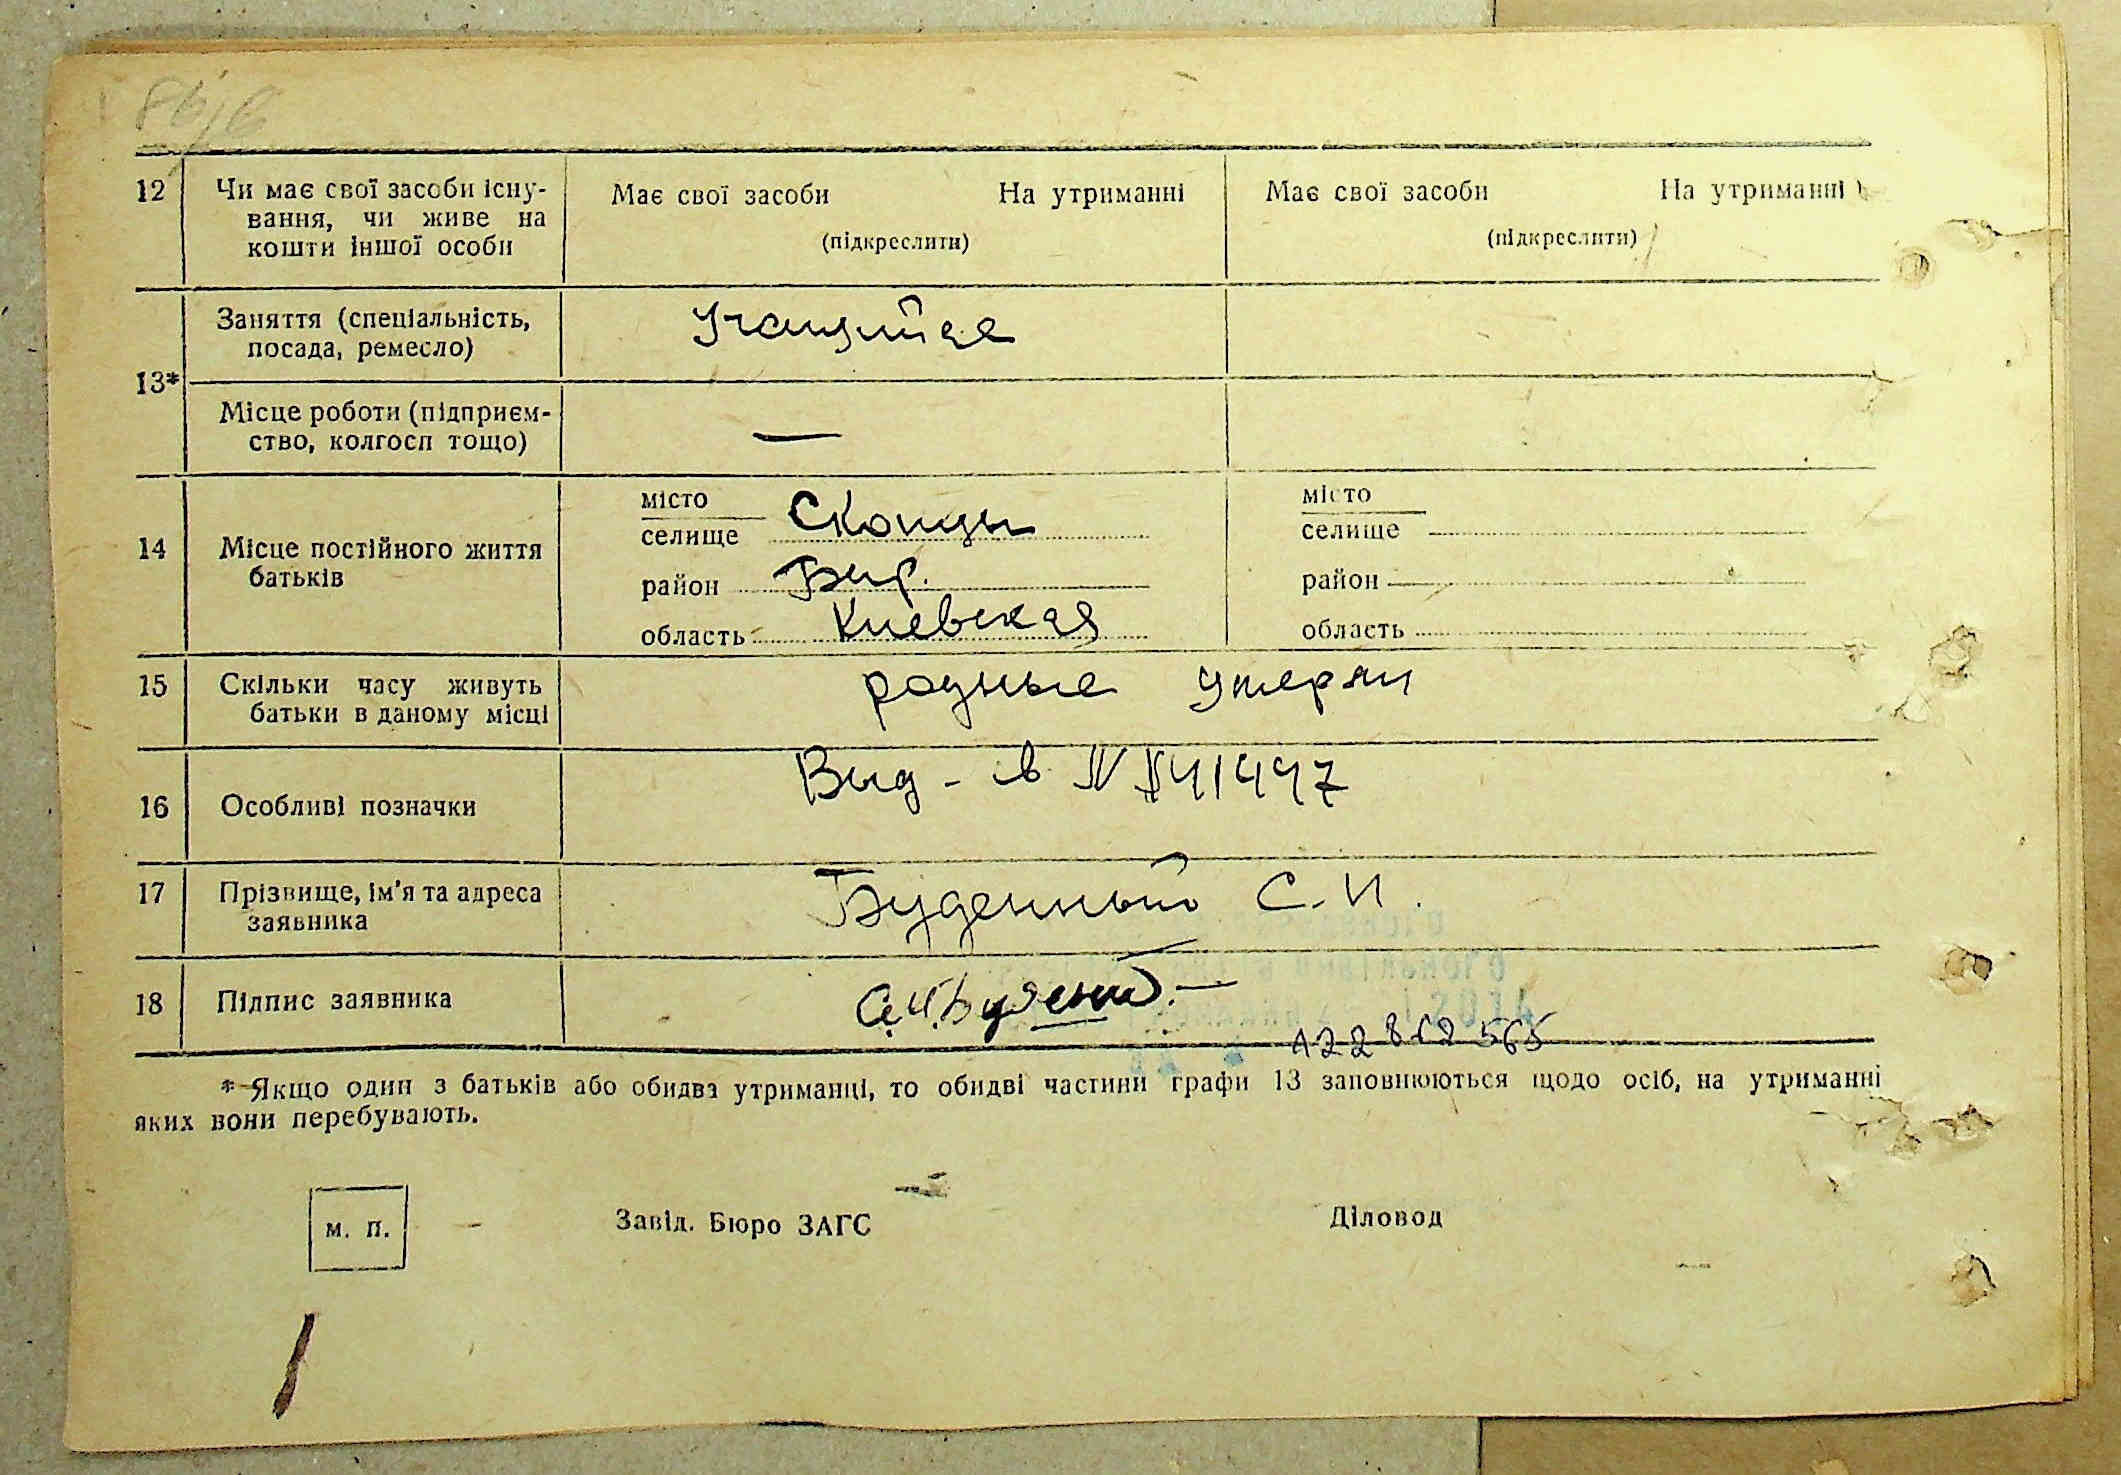 12
Чи має свої засоби існу-
вання, чи живе на
кошти іншої особи
Має свої засоби На утриманні
(підкреслити)
Має свої засоби На утриманні
(підкреслити)
13*
Заняття (спеціальність,
посада, ремесло)
Учащийся
Місце роботи (підприєм-
ство, колгосп тощо)
—
14
Місце постійного життя
батьків
місто
селище Скопцы
район Бар.
область Киевская
місто
селище
район
область
15
Скільки часу живуть
батьки в даному місці
родные утеряны
16
Особливі позначки
Вид-в N
17
Прізвище, ім'я та адреса
заявника
Буденный С. И.
18
Підпис заявника
С.И.Буденный
* Якщо один з батьків або обидва утриманці, то обидві частини графи 13 заповнюються щодо осіб, на утриманні
яких вони перебувають.
м. п.
Завід. Бюро ЗАГС
Діловод